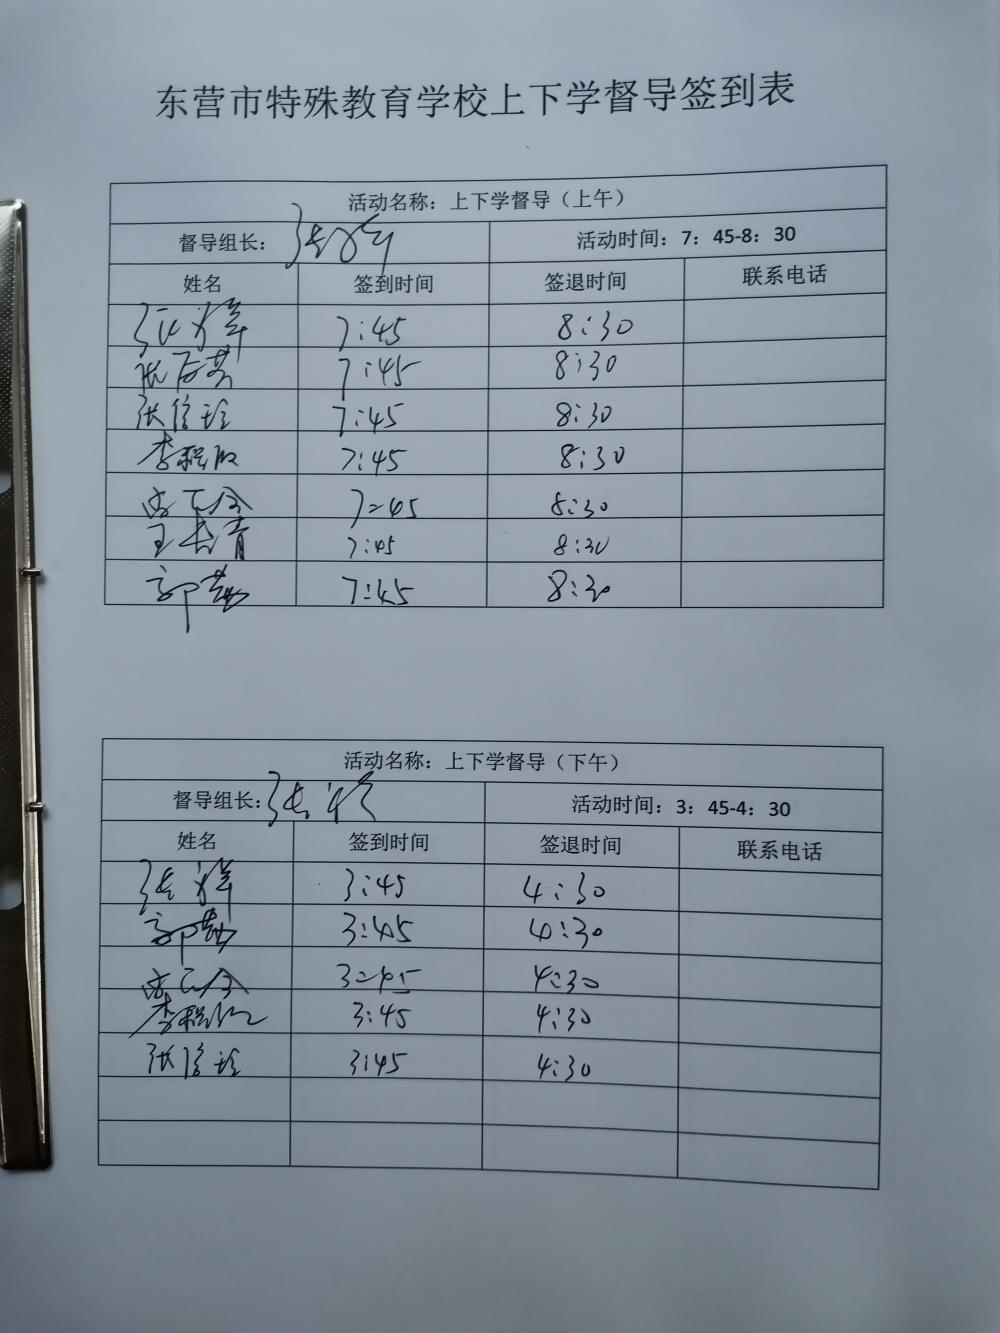 东营市特殊教育学校上下学督导签到表
活动名称：上下学督导（上午）
督导组长： 活动时间：7：45-8：30
姓名 签到时间 签退时间 联系电话
7:45 8:30
7:45 8:30
张 7:45 8:30
李 7:45 8:30
7:45 8:30
王长青 7:45 8:30
郭 7:45 8:30
活动名称：上下学督导（下午）
督导组长： 活动时间：3：45-4：30
姓名 签到时间 签退时间 联系电话
张 3:45 4:30
郭 3:45 4:30
3:45 4:30
李 3:45 4:30
张 3:45 4:30